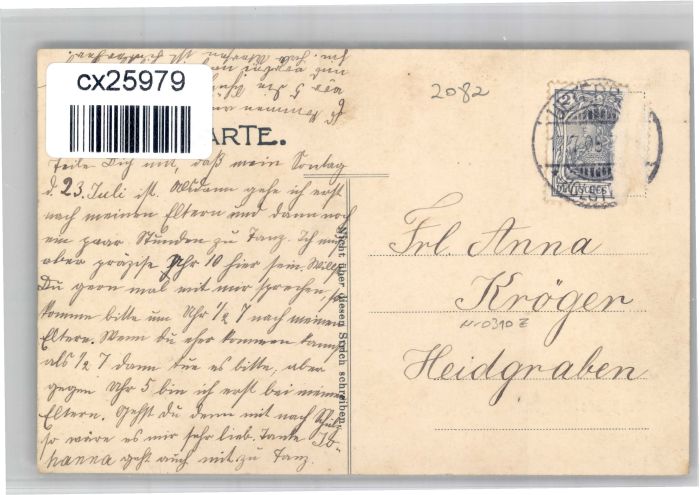 cx25979
2082
ARTE.
UETERS
teile Dich mit, daß mein Sontag
d. 23. Juli ist. Alsdann gehe ich erst
nach meinen Eltern und dann noch
ein paar Stunden zu Tanz. Ich muß
aber präzise Uhr 10 hier sein. Willst
Du gern mal mit mir sprechen, so
komme bitte um Uhr ½ 7 nach meinen
Eltern. Wenn du eher kommen kannst
als ½ 7 dann tue es bitte, aber
gegen Uhr 5 bin ich erst bei meinen
Eltern. Gehst Du denn mit nach
so wäre es mir sehr lieb. Tante Jo-
hanna geht auch mit zu Tanz.
Nicht über diesen Strich schreiben.
Frl. Anna
Kröger
Heidgraben